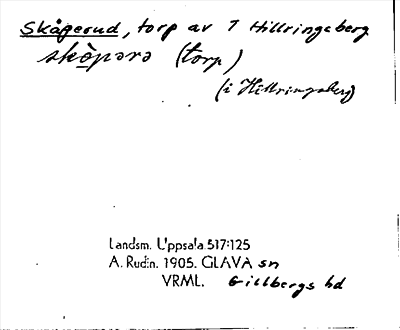 Skåperud, torp av 7 Hillringsberg
skòpərə (torp)
(i Hillringsberg)
Landsm. Uppsala 517:125
A. Rudin. 1905. GLAVA sn
VRML. Gillbergs hd